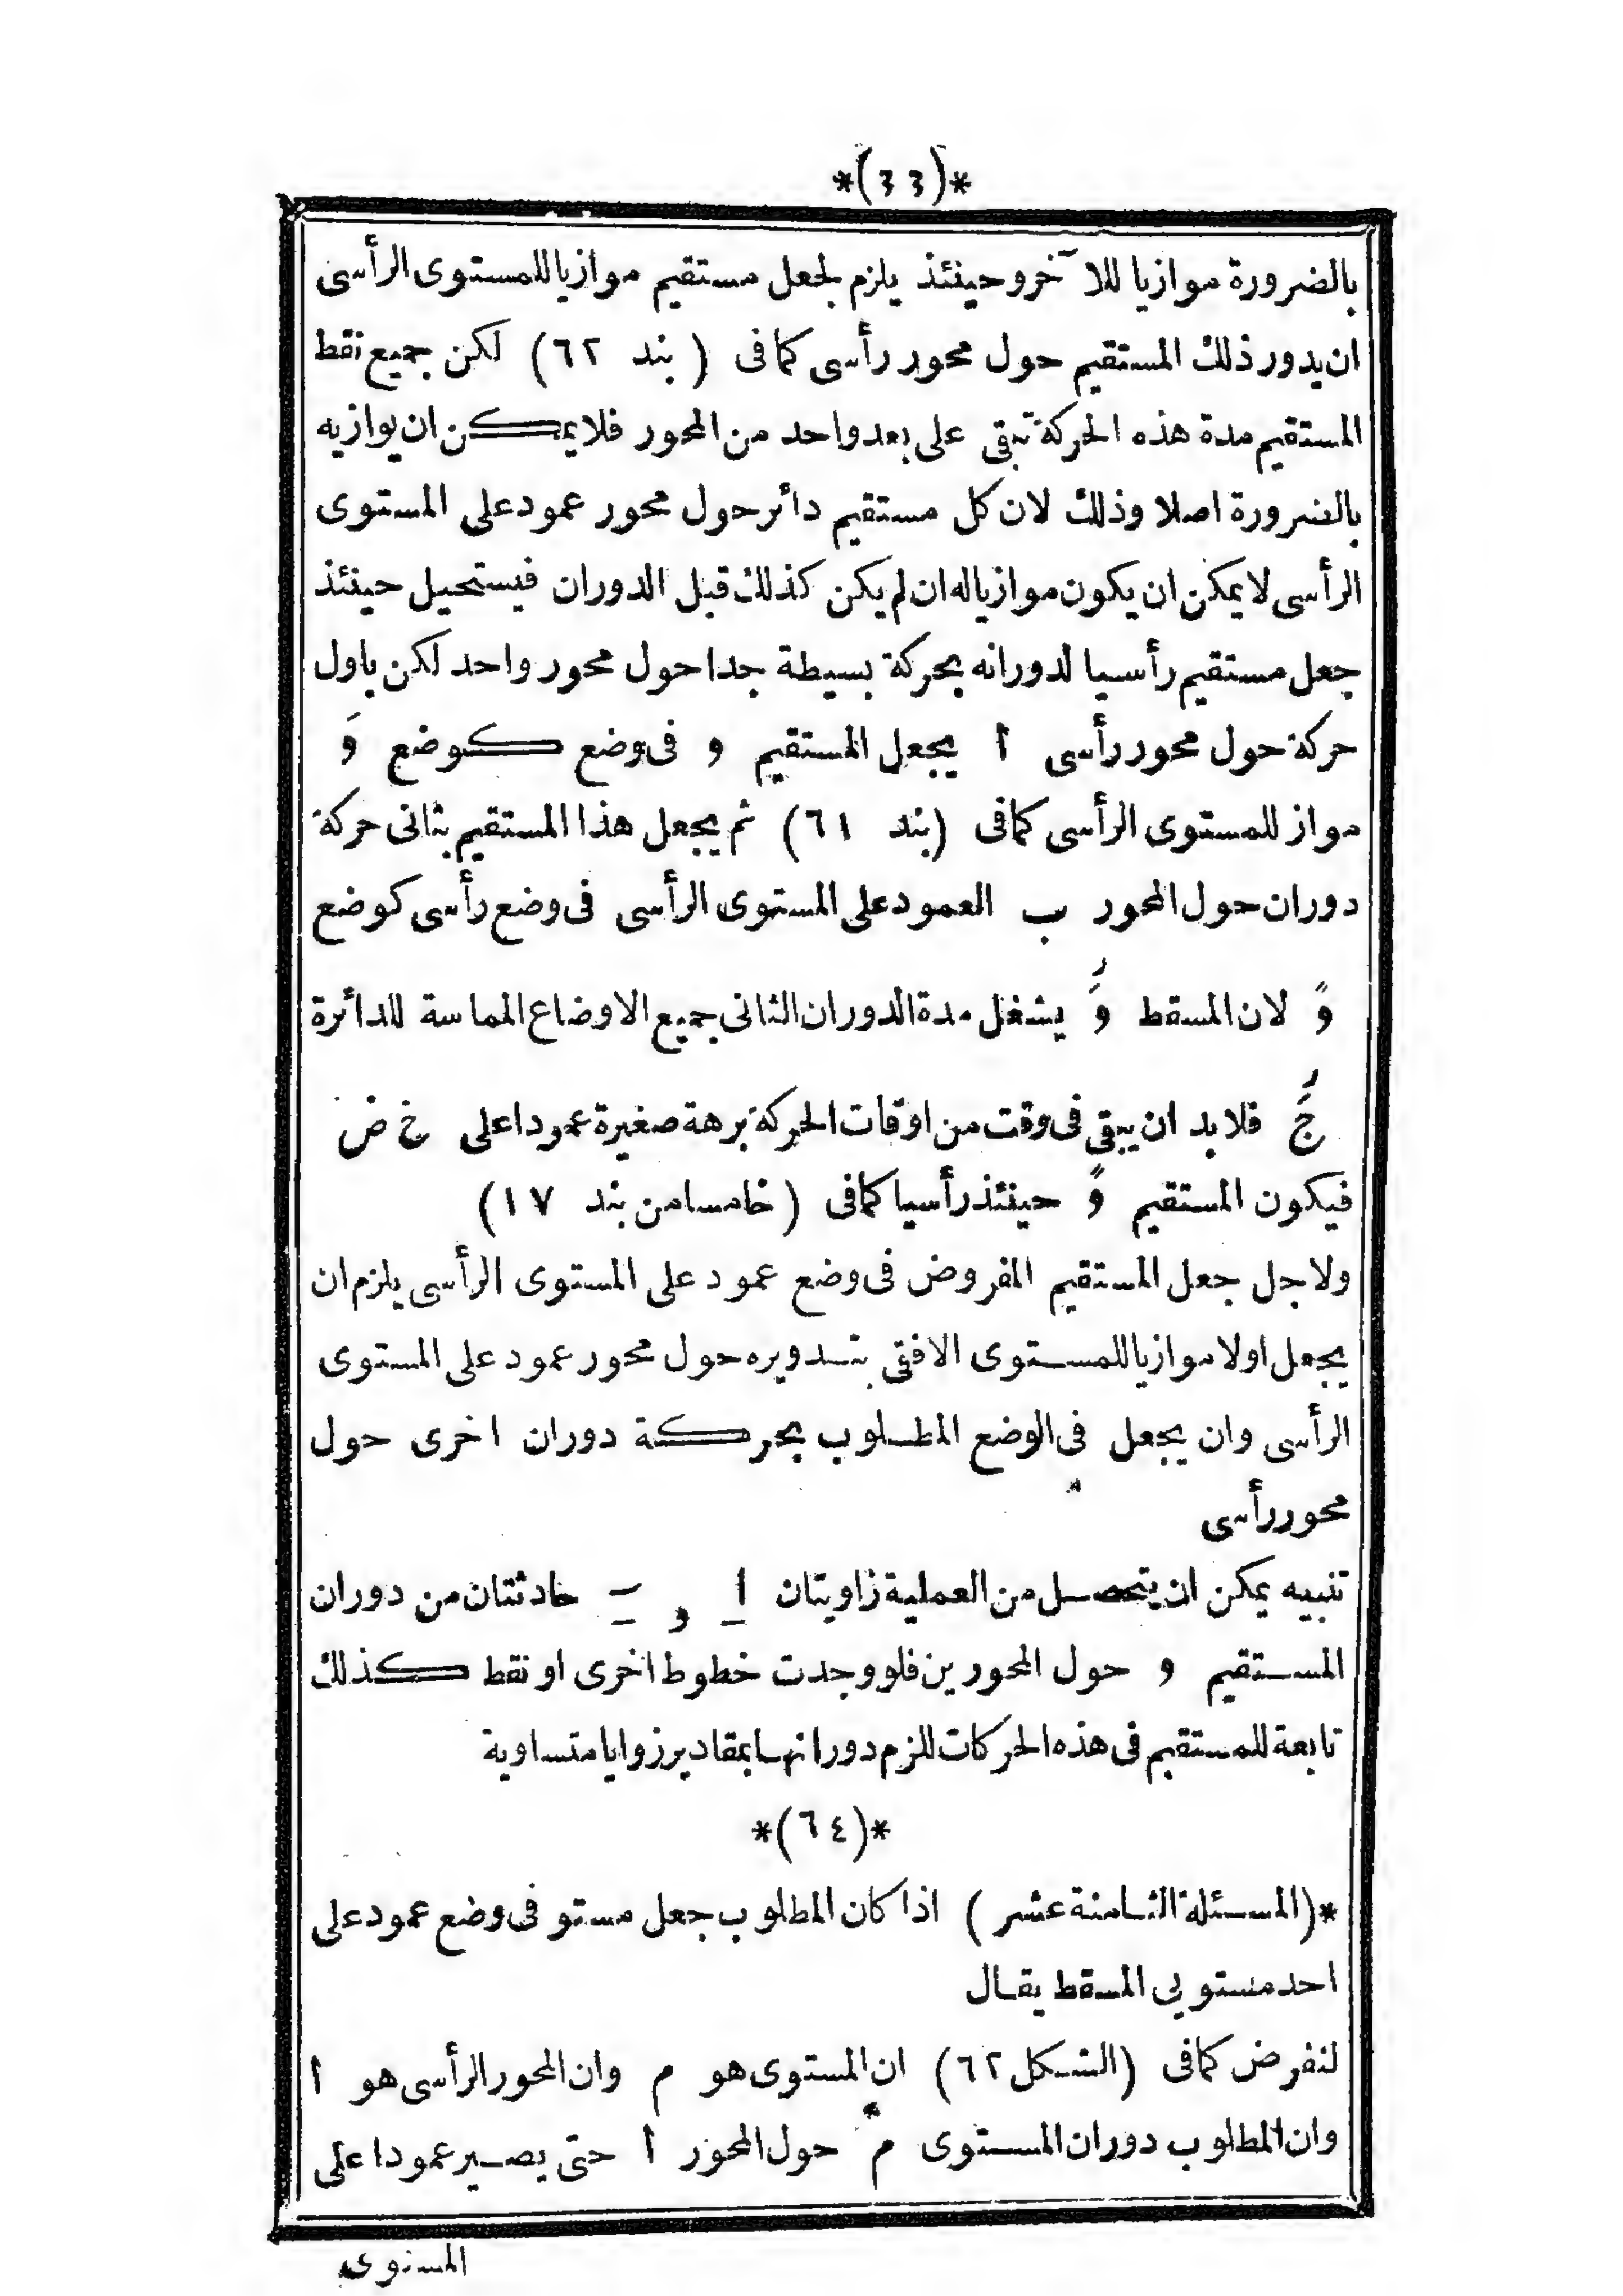 *(٤٤)*
بالضرورة موازيا للآخر وحينئذ يلزم لجعل مستقيم موازيا للمستوى الرأسى
ان يدور ذلك المستقيم حول محور رأسى كما فى (بند ٦٢) لكن جميع نقط
المستقيم مدة هذه الحركة تبقى على بعد واحد من المحور فلا يمكن ان يوازيه
بالضرورة اصلا وذلك لان كل مستقيم دائر حول محور عمود على المستوى
الرأسى لا يمكن ان يكون موازيا له ان لم يكن كذلك قبل الدوران فيستحيل حينئذ
جعل مستقيم رأسيا لدورانه بحركة بسيطة جدا حول محور واحد لكن باول
حركة حول محور رأسى أ يجعل المستقيم و فى وضع كوضع وَ
مواز للمستوى الرأسى كما فى (بند ٦١) ثم يجعل هذا المستقيم بثانى حركة
دوران حول المحور ب العمود على المستوى الرأسى فى وضع رأسى كوضع
وً لان المسقط وَ يشغل مدة الدوران الثانى جميع الاوضاع المماسة للدائرة
حَ فلا بد ان يبقى فى وقت من اوقات الحركة برهة صغيرة عمودا على خ ض
فيكون المستقيم وً حينئذ رأسيا كما فى (خامسا من بند ١٧)
ولاجل جعل المستقيم المفروض فى وضع عمود على المستوى الرأسى يلزم ان
يجعل اولا موازيا للمستوى الافقى بتدويره حول محور عمود على المستوى
الرأسى وان يجعل فى الوضع المطلوب بحركة دوران اخرى حول
محور رأسى
تنبيه يمكن ان يتحصل من العملية زاويتان ا و ب حادثتان من دوران
المستقيم و حول المحورين فلو وجدت خطوط اخرى او نقط كذلك
تابعة للمستقيم فى هذه الحركات للزم دورانها بمقادير زوايا متساوية
*(٦٤)*
*(المسئلة الثامنة عشر) اذا كان المطلوب جعل مستو فى وضع عمود على
احد مستويى المسقط يقال
لنفرض كما فى (الشكل ٦٢) ان المستوى هو م وان المحور الرأسى هو أ
وان المطلوب دوران المستوى م حول المحور أ حتى يصير عمودا على
المستوى